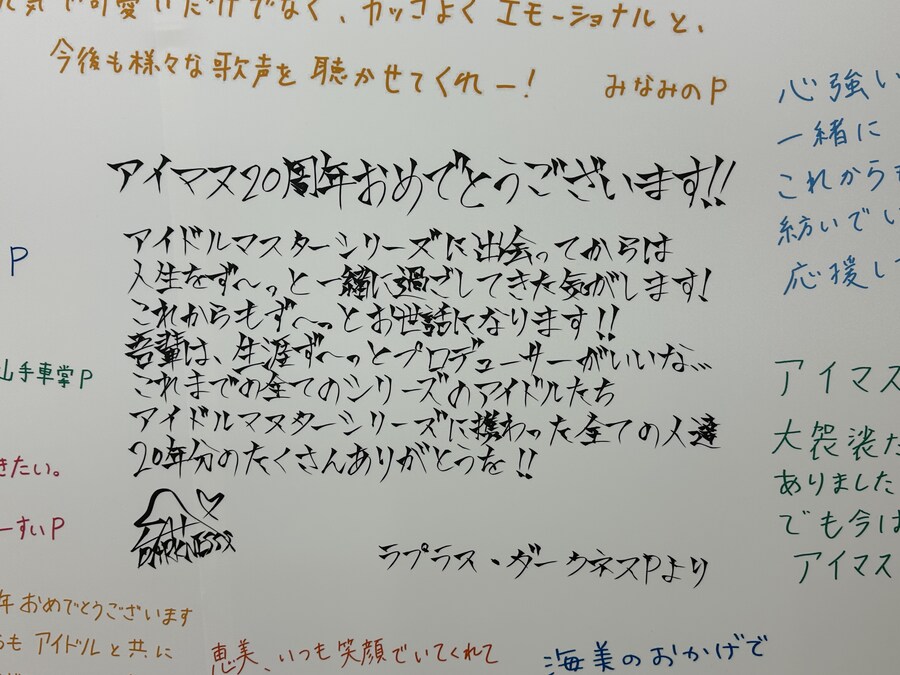 元気で可愛いだけでなく、カッコよくエモーショナルと、
今後も様々な歌声を聴かせてくれー!
みなみのP
心強い
一緒に
これからも
紡いでい
応援し
アイマス20周年おめでとうございます!!
アイドルマスターシリーズに出会ってからは
人生をず〜っと一緒に過ごしてきた気がします!
これからもず〜っとお世話になります!!
吾輩は、生涯ず〜っとプロデューサーがいいな…
これまでの全てのシリーズのアイドルたち
アイドルマスターシリーズに携わった全ての人達
20年分のたくさんありがとうを!!
DARKNESS
ラプラス・ダークネスPより
P
山手車掌P
きたい。
ーすいP
アイマス
大袈裟だ
ありました
でも今は
アイマス
年おめでとうございます
らも アイドルと共に
恵美、いつも笑顔でいてくれて
海美のおかげで